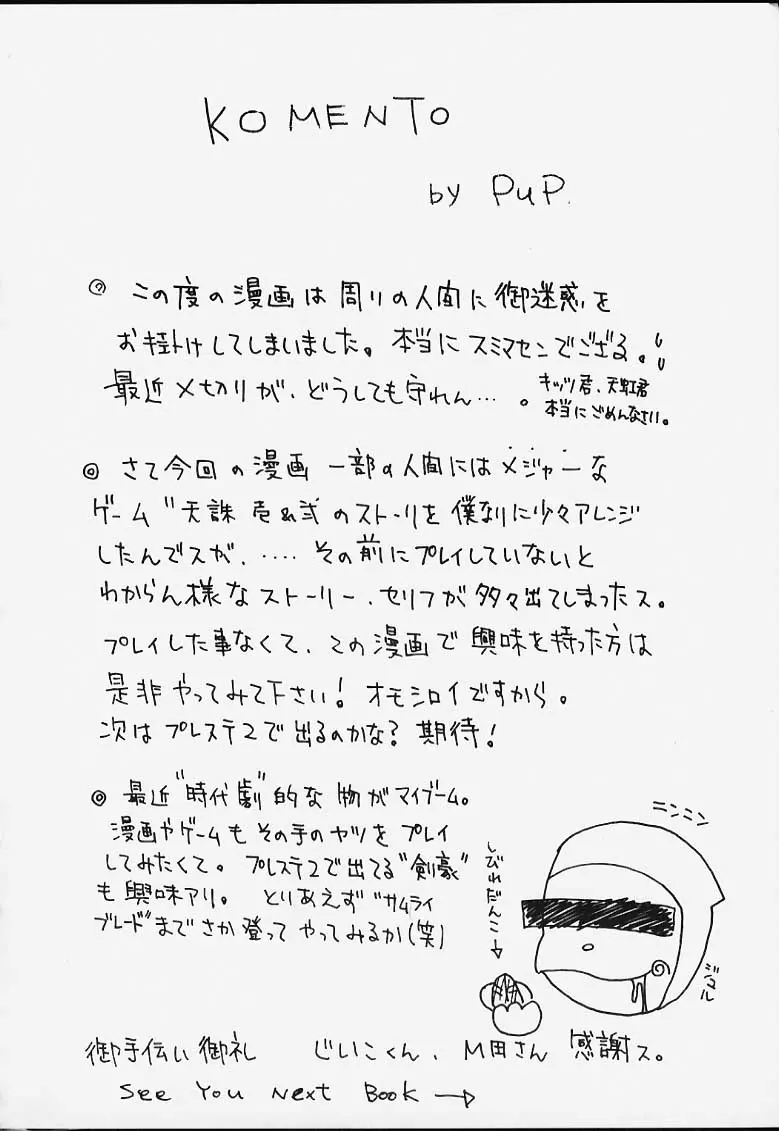 KOMENTO
by PuP.
◎ この度の漫画は周りの人間に御迷惑を
お掛けしてしまいました。本当にスミマセンでござる。
最近〆切りが、どうしても守れん…。
キッツ君、天虹君
本当にごめんなさい。
◎ さて今回の漫画 一部の人間にはメジャーな
ゲーム〝天誅 壱&弐のストーリを僕なりに少々アレンジ
したんでスが、‥‥その前にプレイしていないと
わからん様なストーリー、セリフが多々出てしまったス。
プレイした事なくて、この漫画で興味を持った方は
是非やってみて下さい！オモシロイですから。
次はプレステ2で出るのかな？期待！
◎ 最近〝時代劇〟的な物がマイブーム。
漫画やゲームもその手のヤツをプレイ
してみたくて。プレステ2で出てる〝剣豪〟
も興味アリ。とりあえず〝サムライ
ブレード〟までさか登ってやってみるか(笑)
ニンニン
しびれだんご→
ジュル
御手伝い御礼 じいこくん、M田さん 感謝ス。
See You Next Book →